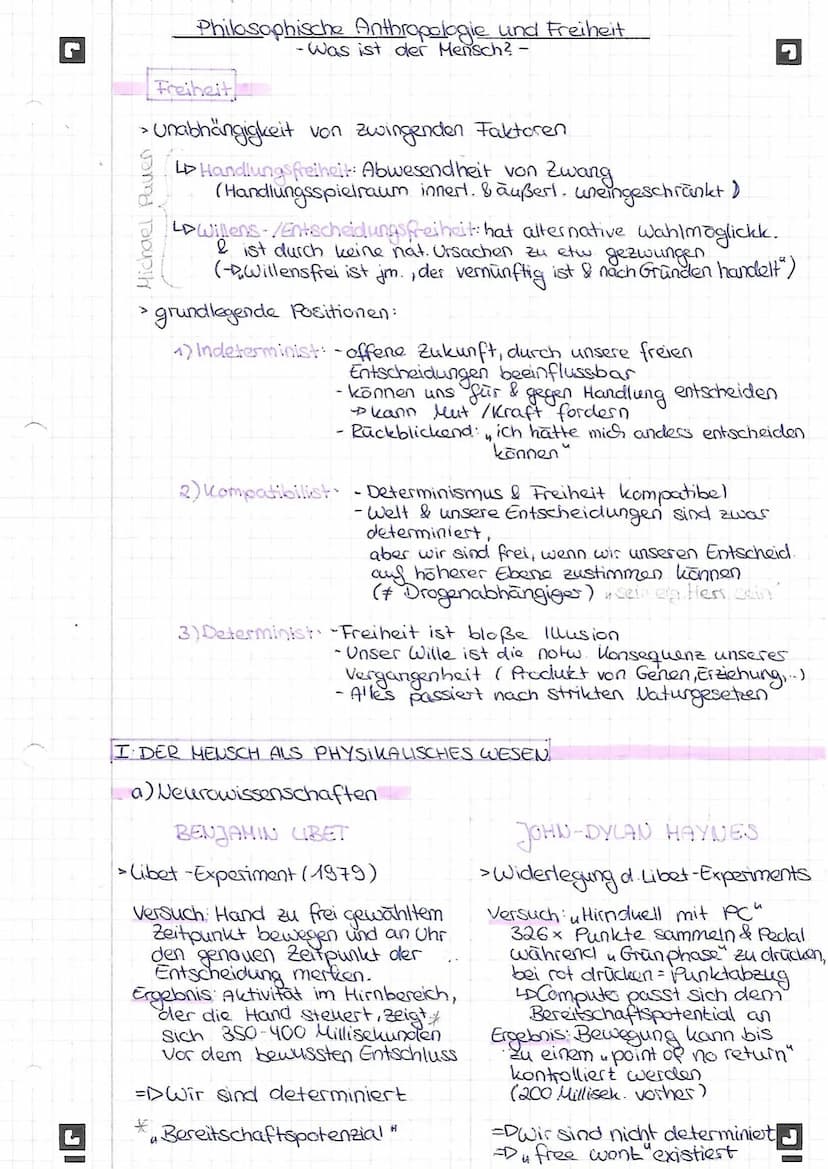 Philosophische Anthropologie und Freiheit
- Was ist der Mensch? -
Freiheit
> Unabhängigkeit von zwingenden Faktoren
Michael Pauen
↳ Handlungsfreiheit: Abwesendheit von Zwang
(Handlungsspielraum innerl. & äußerl. uneingeschränkt)
↳ Willens-/Entscheidungsfreiheit: hat alternative Wahlmöglickk.
& ist durch keine nat. Ursachen zu etw gezwungen
(→ „Willensfrei ist jm., der vernünftig ist & nach Gründen handelt“)
> grundlegende Positionen:
1) Indeterminist: - offene Zukunft, durch unsere freien
Entscheidungen beeinflussbar
- können uns für & gegen Handlung entscheiden
→ kann Mut / Kraft fordern
- Rückblickend: „ich hätte mich anders entscheiden
können“
2) Kompatibilist: - Determinismus & Freiheit kompatibel
- Welt & unsere Entscheidungen sind zwar
determiniert,
aber wir sind frei, wenn wir unseren Entscheid.
auf höherer Ebene zustimmen können
(≠ Drogenabhängiger) „sein eig. Herr sein“
3) Determinist: - Freiheit ist bloße Illusion
- Unser Wille ist die notw. Konsequenz unseres
Vergangenheit (Produkt von Genen, Erziehung,..)
- Alles passiert nach strikten Naturgesetzen
I. DER MENSCH ALS PHYSIKALISCHES WESEN
a) Neurowissenschaften
BENJAMIN LIBET
> Libet-Experiment (1979)
Versuch: Hand zu frei gewähltem
Zeitpunkt bewegen und an Uhr
den genauen Zeitpunkt der
Entscheidung merken.
Ergebnis: Aktivität im Hirnbereich,
der die Hand steuert, zeigt *
sich 350-400 Millisekunden
vor dem bewussten Entschluss
=> Wir sind determiniert
* „Bereitschaftspotenzial“
JOHN-DYLAN HAYNES
> Widerlegung d. Libet-Experiments
Versuch: „Hirnduell mit PC“
326x Punkte sammeln & Pedal
während „Grünphase“ zu drücken,
bei rot drücken = Punktabzug
↳ Compute passt sich dem
Bereitschaftspotential an
Ergebnis: Bewegung kann bis
zu einem „point of no return“
kontrolliert werden
(200 Millisek. vorher)
=> Wir sind nicht determiniert
=> „free wont“ existiert